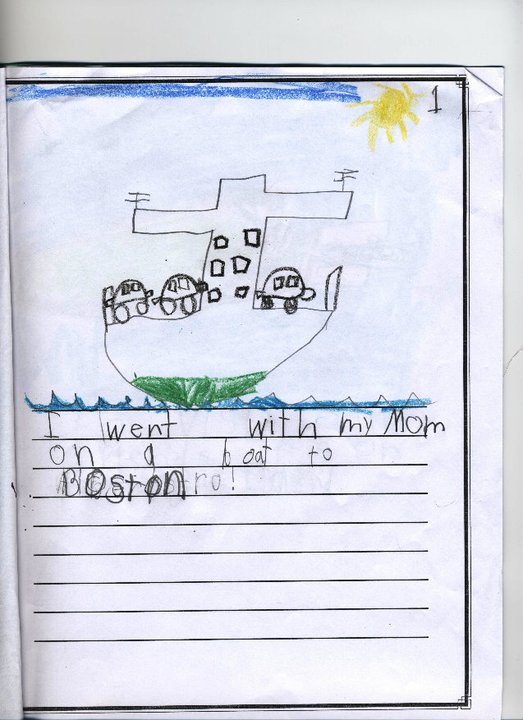 1
I went with my Mom
on a boat to
Boston!